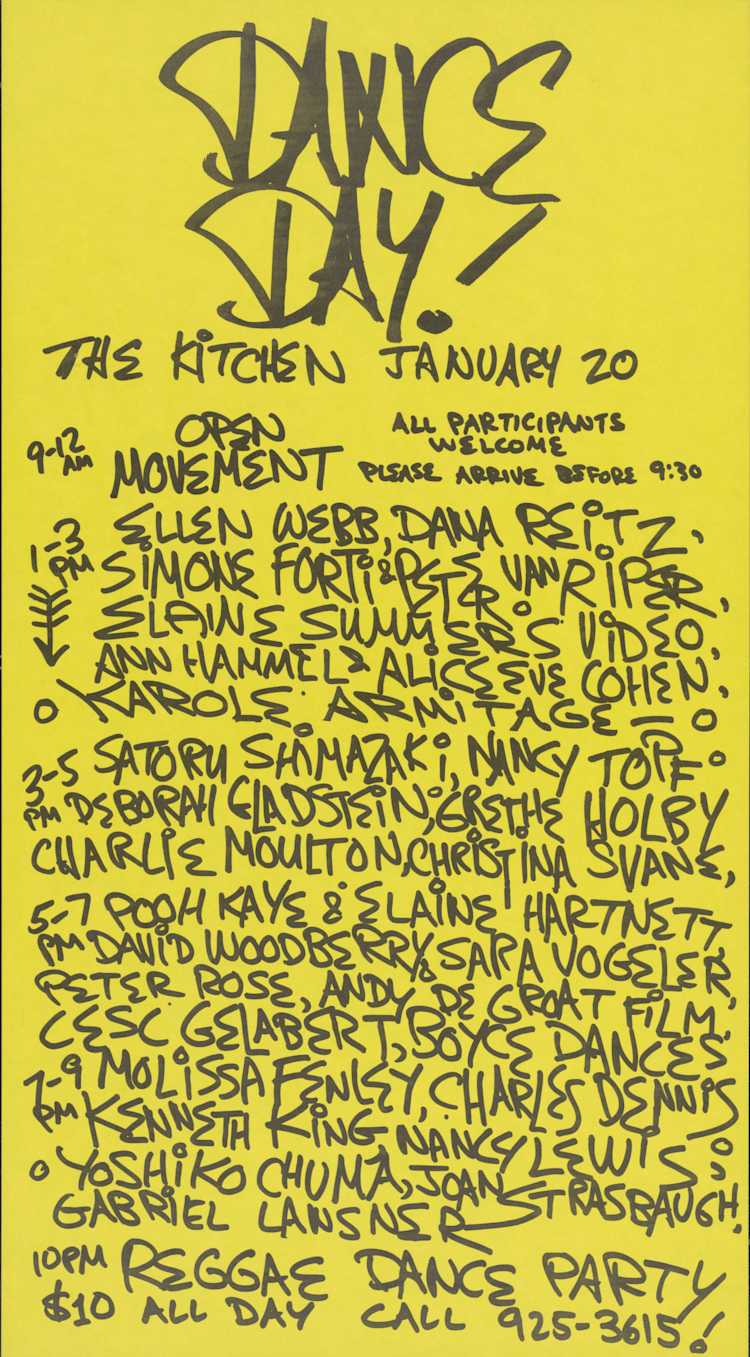 DANCE
DAY!
THE KITCHEN JANUARY 20
9-12 AM OPEN MOVEMENT ALL PARTICIPANTS WELCOME PLEASE ARRIVE BEFORE 9:30
1-3 PM ELLEN WEBB, DANA REITZ,
SIMONE FORTI & PETER VAN RIPER,
ELAINE SUMMERS VIDEO,
ANN HAMMEL & ALICE EVE COHEN,
KAROLE ARMITAGE
3-5 PM SATORU SHIMAZAKI, NANCY TOPF
DEBORAH GLADSTEIN, GRETHE HOLBY
CHARLIE MOULTON, CHRISTINA SVANE,
5-7 PM POOH KAYE & ELAINE HARTNETT,
DAVID WOODBERRY & SARA VOGELER,
PETER ROSE, ANDY DE GROAT FILM,
CESC GELABERT, BOYCE DANCES
7-9 PM MOLISSA FENLEY, CHARLES DENNIS
KENNETH KING, NANCY LEWIS,
YOSHIKO CHUMA, JOAN STRASBAUGH,
GABRIEL LANSNER
10PM REGGAE DANCE PARTY!
$10 ALL DAY CALL 925-3615